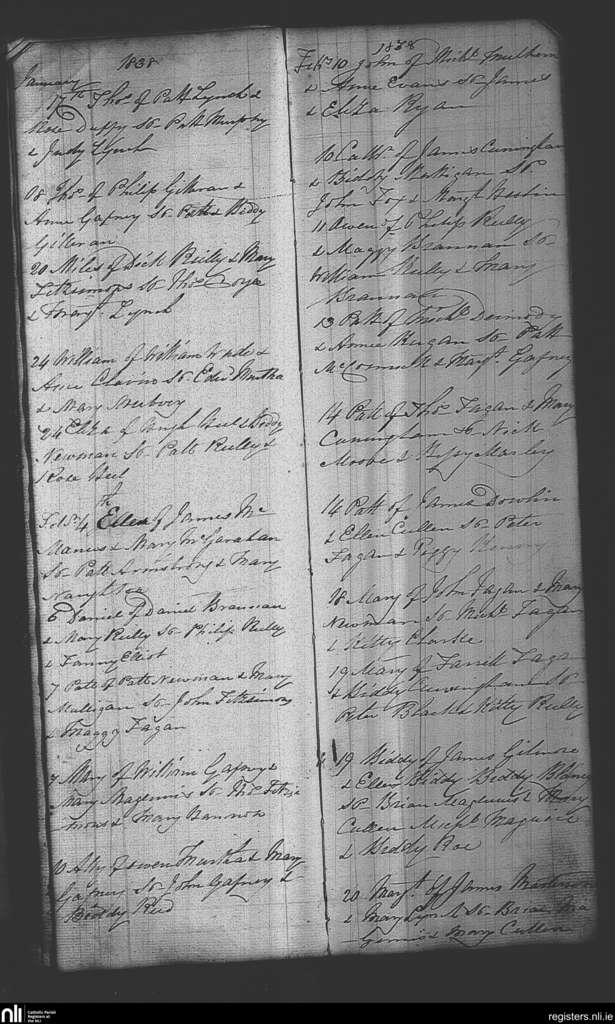 1838
January
17th Thos of Patt Lynch &
Rose Duffy Sp Patt Murphy
& Judy Lynch
Thos of Philip Gillivan &
Anne Gafney Sp Patt & Biddy
Gilleran
20 Miles of Dick Reilly & Mary
Fitzsimons Sp Thos
& Margt Lynch
24 William of William Wade &
Sp Edwd Murtha
& Mary
24 Eliza of Hugh & Biddy
Newman Sp Patt Reilly &
Rose
Feb 4th Ellen of James Mc
Manus & Mary McGarahan
Sp Patt Armstrong & Mary
Naughton
6 Daniel of Daniel Brannan
& Mary Reilly Sp Philip Reilly
& Fanny Elliot
7 Patt of Patt Newman & Mary
Mulligan Sp John Fitzsimons
& Maggy Fagan
7 Mary of William Gafney &
Mary Magennis Sp Thos Fitzsi
mons & Mary Bannon
10 of Owen Murtha & Mary
Gafney Sp John Gafney &
Biddy Reid
1838
Feb 10 John of Michl Mulhern
& Anne Evans Sp James
& Eliza Ryan
10 Cathe of James Cuningham
& Biddy Sp
John Fox & Margt
11 Owen of Philip Reilly
& Maggy Brannan Sp
William Reilly & Mary
Brannan
13 Patt of Michl Dermody
& Anne Keegan Sp Patt
McConnell & Margt Gafney
14 Patt of Thos Fagan & Mary
Cuningham Sp Nick
Moore & Marley
14 Patt of James Dowlin
& Ellen Cullen Sp Peter
Fagan & Peggy
18 Mary of John Fagan & Mary
Newman Sp Michl Fagan
& Kitty Clarke
19 Mary of Farrell Fagan
& Biddy Cuningham Sp
Peter Black & Kitty Reilly
19 Biddy of James Gilmore
& Ellen Biddy Biddy
Sp Brian Magennis & Mary
Cullen Michl Maguire
& Biddy Roe
20 Margt of James
& Mary Sp Brian Ma
Gennis & Mary Cullen
nli
Catholic Parish
Registers at
the NLI
registers.nli.ie